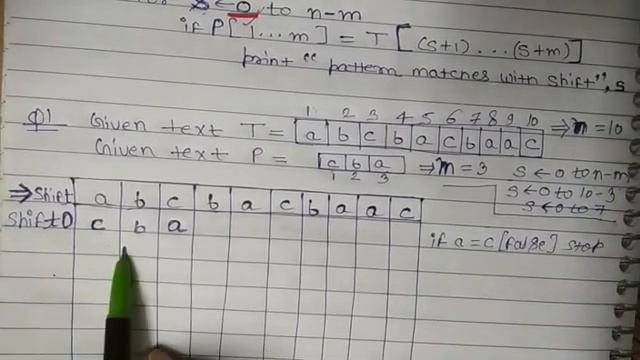 s ← 0 to n-m
if P[1...m] = T[(s+1)...(s+m)]
print " pattern matches with shift", s
1 2 3 4 5 6 7 8 9 10
Q1 Given text T = a b c b a c b a a c ⇒ n = 10
Given text P = c b a ⇒ m = 3 s ← 0 to n-m
1 2 3
s ← 0 to 10-3
s ← 0 to 7
⇒ Shift a b c b a c b a a c
Shift 0 c b a
if a = c [false] stop